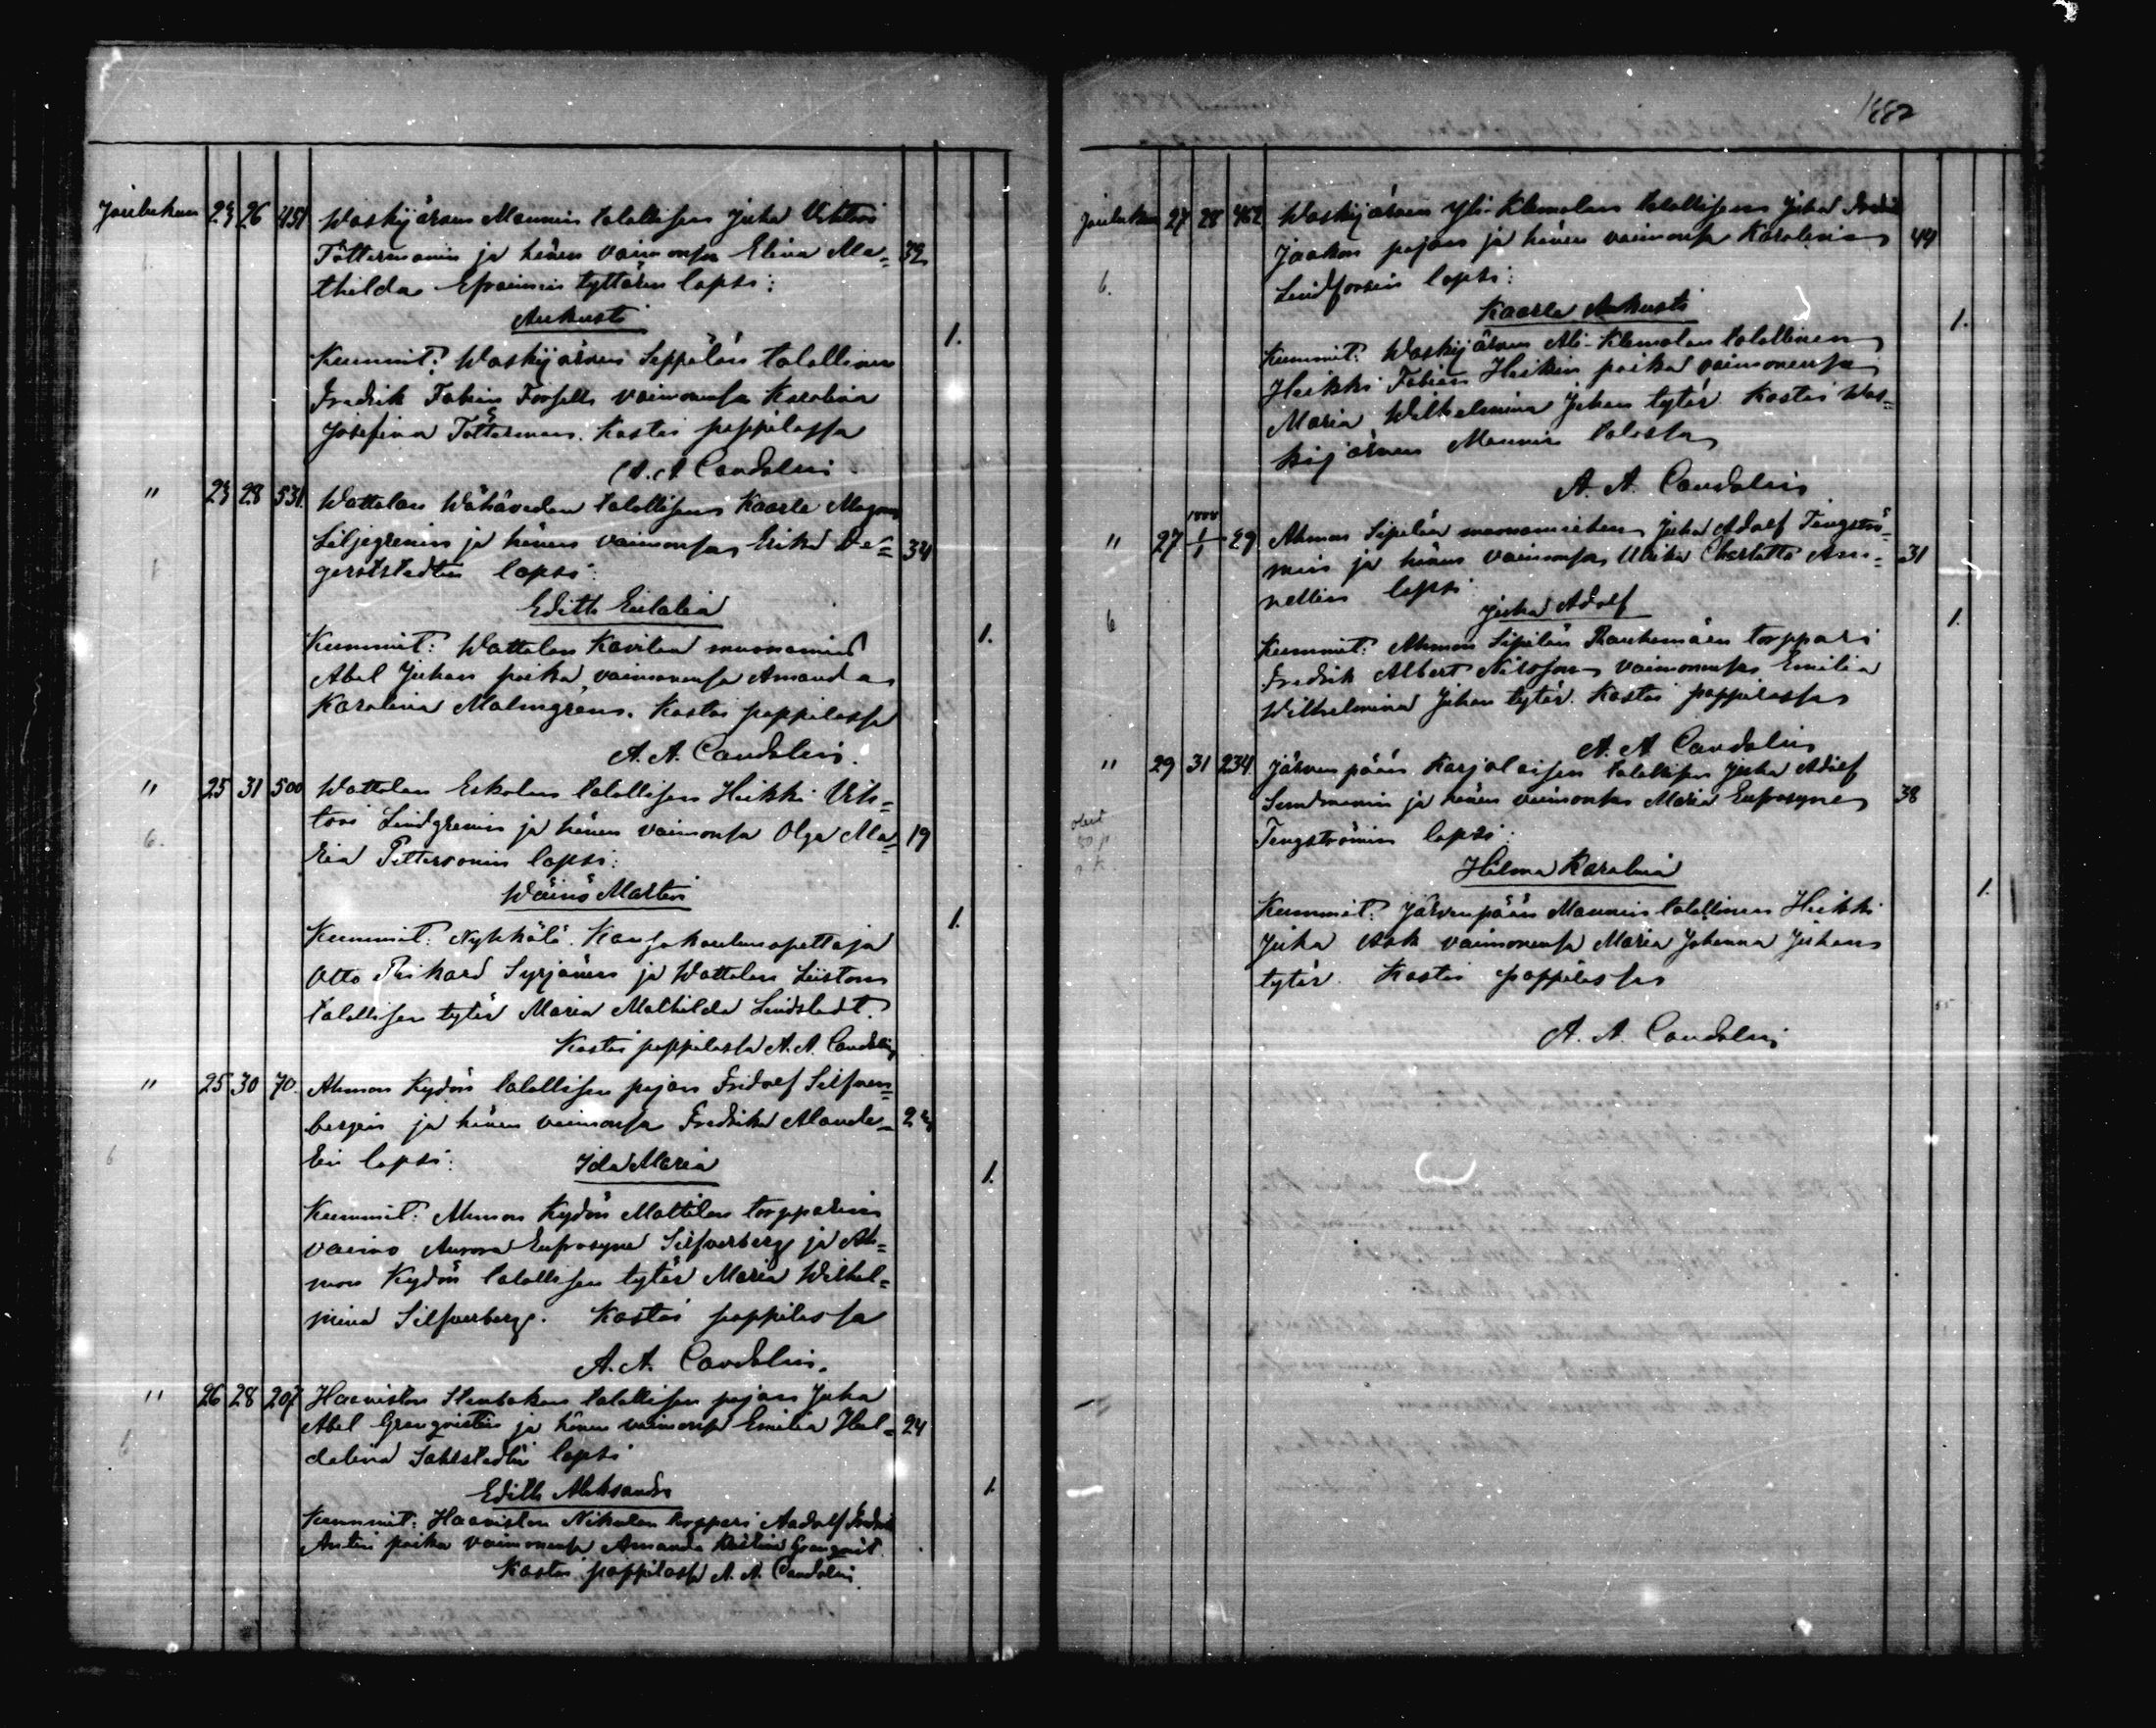 Joulukuun 23 26 451 Waskijärven Mannin talollisen Juha Viktor
Töttermanin ja hänen vaimonsa Elina Ma= 32
thilda Efraimin tyttären lapsi:
Aukusti
1.
Kummit: Waskijärven Seppälän talollinen
Fredrik Fabian Forsell vaimonensa Karolina
Josefina Tötterman. Kastoi pappilassa
A. A Candolin
" 23 28 531. Wattolan Wähäveden talollisen Kaarle Magnus
Liljegrenin ja hänen vaimonsa Erika De= 34
gerstedtin lapsi:
Edith Eulalia
1.
Kummit: Wattolan Kavilan muonamies
Abel Juhan poika, vaimonensa Amanda
Karolina Malmgrens. Kastoi pappilassa
A. A. Candolin.
" 25 31 500 Wattolan Eskolan talollisen Heikki Vik=
tori Lindgrenin ja hänen vaimonsa Olga Ma= 19
6. ria Pettersonin lapsi:
Wäinö Martin
1.
Kummit: Nykkälä. Kansakoulunopettaja
Otto Rikard Syrjänen ja Wattolan Liston
talollisen tytär Maria Mathilda Lindstedt.
Kastoi pappilassa A. A. Candolin
" 25 30 70. Ahmon Kydön talollisen pojan Fridolf Silfver=
bergin ja hänen vaimonsa Fredrika
6 lapsi: Ida Maria
1.
Kummit: Ahmon Kydön Mattilan torpparin
vaimo Aurora Eufrosyne Silfverberg ja Ah=
mon Kydön talollisen tytär Maria Wilhel=
mina Silfverberg. Kastoi pappilassa
A. A. Candolin.
" 26 28 207 Haaviston Stenbakan talollisen pojan Juha
Abel Granqvistin ja hänen vaimonsa Emilia Hel= 24
delina Sahlstedtin lapsi
Edith Aleksandra
1.
Kummit: Haaviston Nikulan torppari Aadolf Fredrik
Antin poika vaimonensa Amanda Kristina Granqvist.
Kastoi pappilassa A. A. Candolin.
1882
Joulukuun 27 28 462 Waskijärven Yli-Klemolan talollisen Juha Fredrik
Jaakon pojan ja hänen vaimonsa Karolina 44
6. Lindforsin lapsi:
Kaarle Aukusti
1.
Kummit: Waskijärven Ali-Klemolan talollinen
Heikki Fabian Heikin poika vaimonensa
Maria Wilhelmina Juhan tytär. Kastoi Was=
kijärven Mannin talossa
A. A. Candolin
" 27 1888 1/1 29 Ahmon Sipilän muonamiehen Juha Adolf Tengströ=
min ja hänen vaimonsa Ulrika Charlotta An= 31
nellin lapsi
6 Juha Adolf
1.
Kummit: Ahmon Sipilän Rauhamäen torppari
Fredrik Albert Nilsson vaimonensa Emilia
Wilhelmina Juhan tytär. Kastoi pappilassa
A. A Candolin
" 29 31 234 Järvenpään Karjalaisen talollisen Juha Adolf
Sundmanin ja hänen vaimonsa Maria Eufrosyne 38
Tengströmin lapsi:
Hilma Karolina
1.
Kummit: Järvenpään Mannin talollinen Heikki
Juha Ask vaimonensa Maria Johanna Juhan
tytär. Kastoi pappilassa
A. A. Candolin